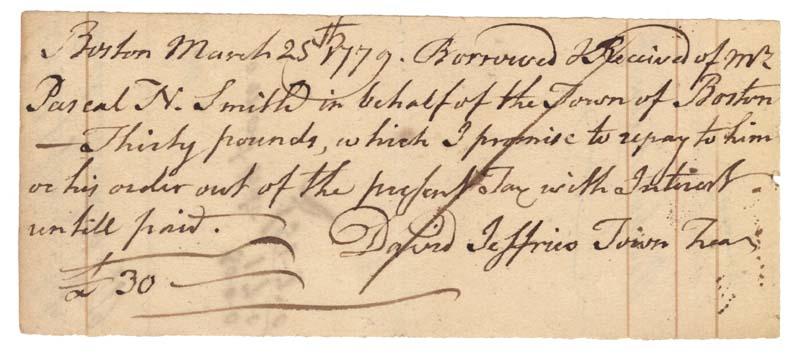 Boston March 25th 1779. Borrowed & Received of Mr
Pascal N. Smith in behalf of the Town of Boston
— Thirty pounds, which I promise to repay to him
or his order out of the present Tax with Interest
untill paid.
David Jeffries Town Trea
£ 30